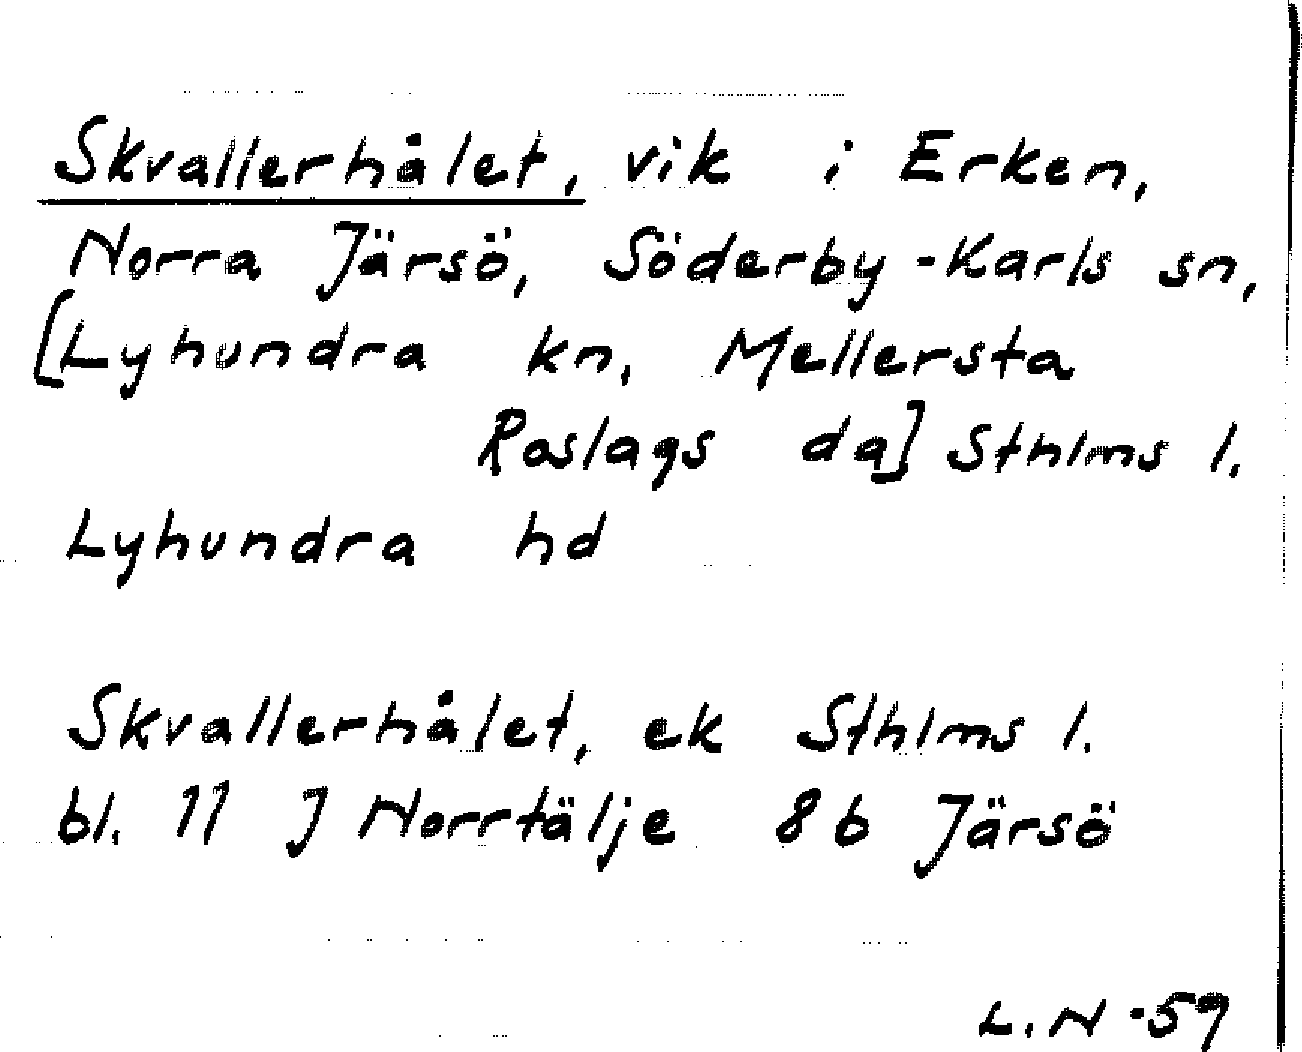 Skvallerhålet, vik i Erken,
Norra Järsö, Söderby-Karls sn,
[Lyhundra kn, Mellersta
Roslags da] Sthlms l.
Lyhundra hd
Skvallerhålet, ek Sthlms l.
bl. 11 J Norrtälje 8 b Järsö
L.N -59